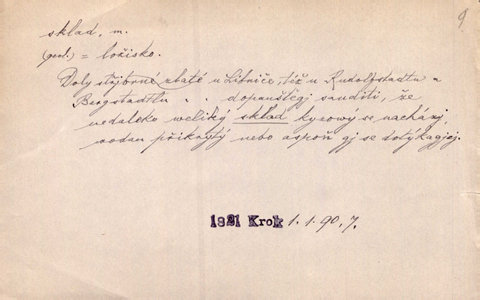 9
sklad, m.
(geol.) = ložisko.
Doly stříbrné zlaté u Libniče, též u Rudolfstadtu a
Bergstadtlu . . dopauštěgj sauditi, že
nedaleko weliký sklad kyzowý se nacházý,
wodau přikrytý nebo aspoň gj se dotýkagjcj.
1821 Krok 1. 1. 90, 7.